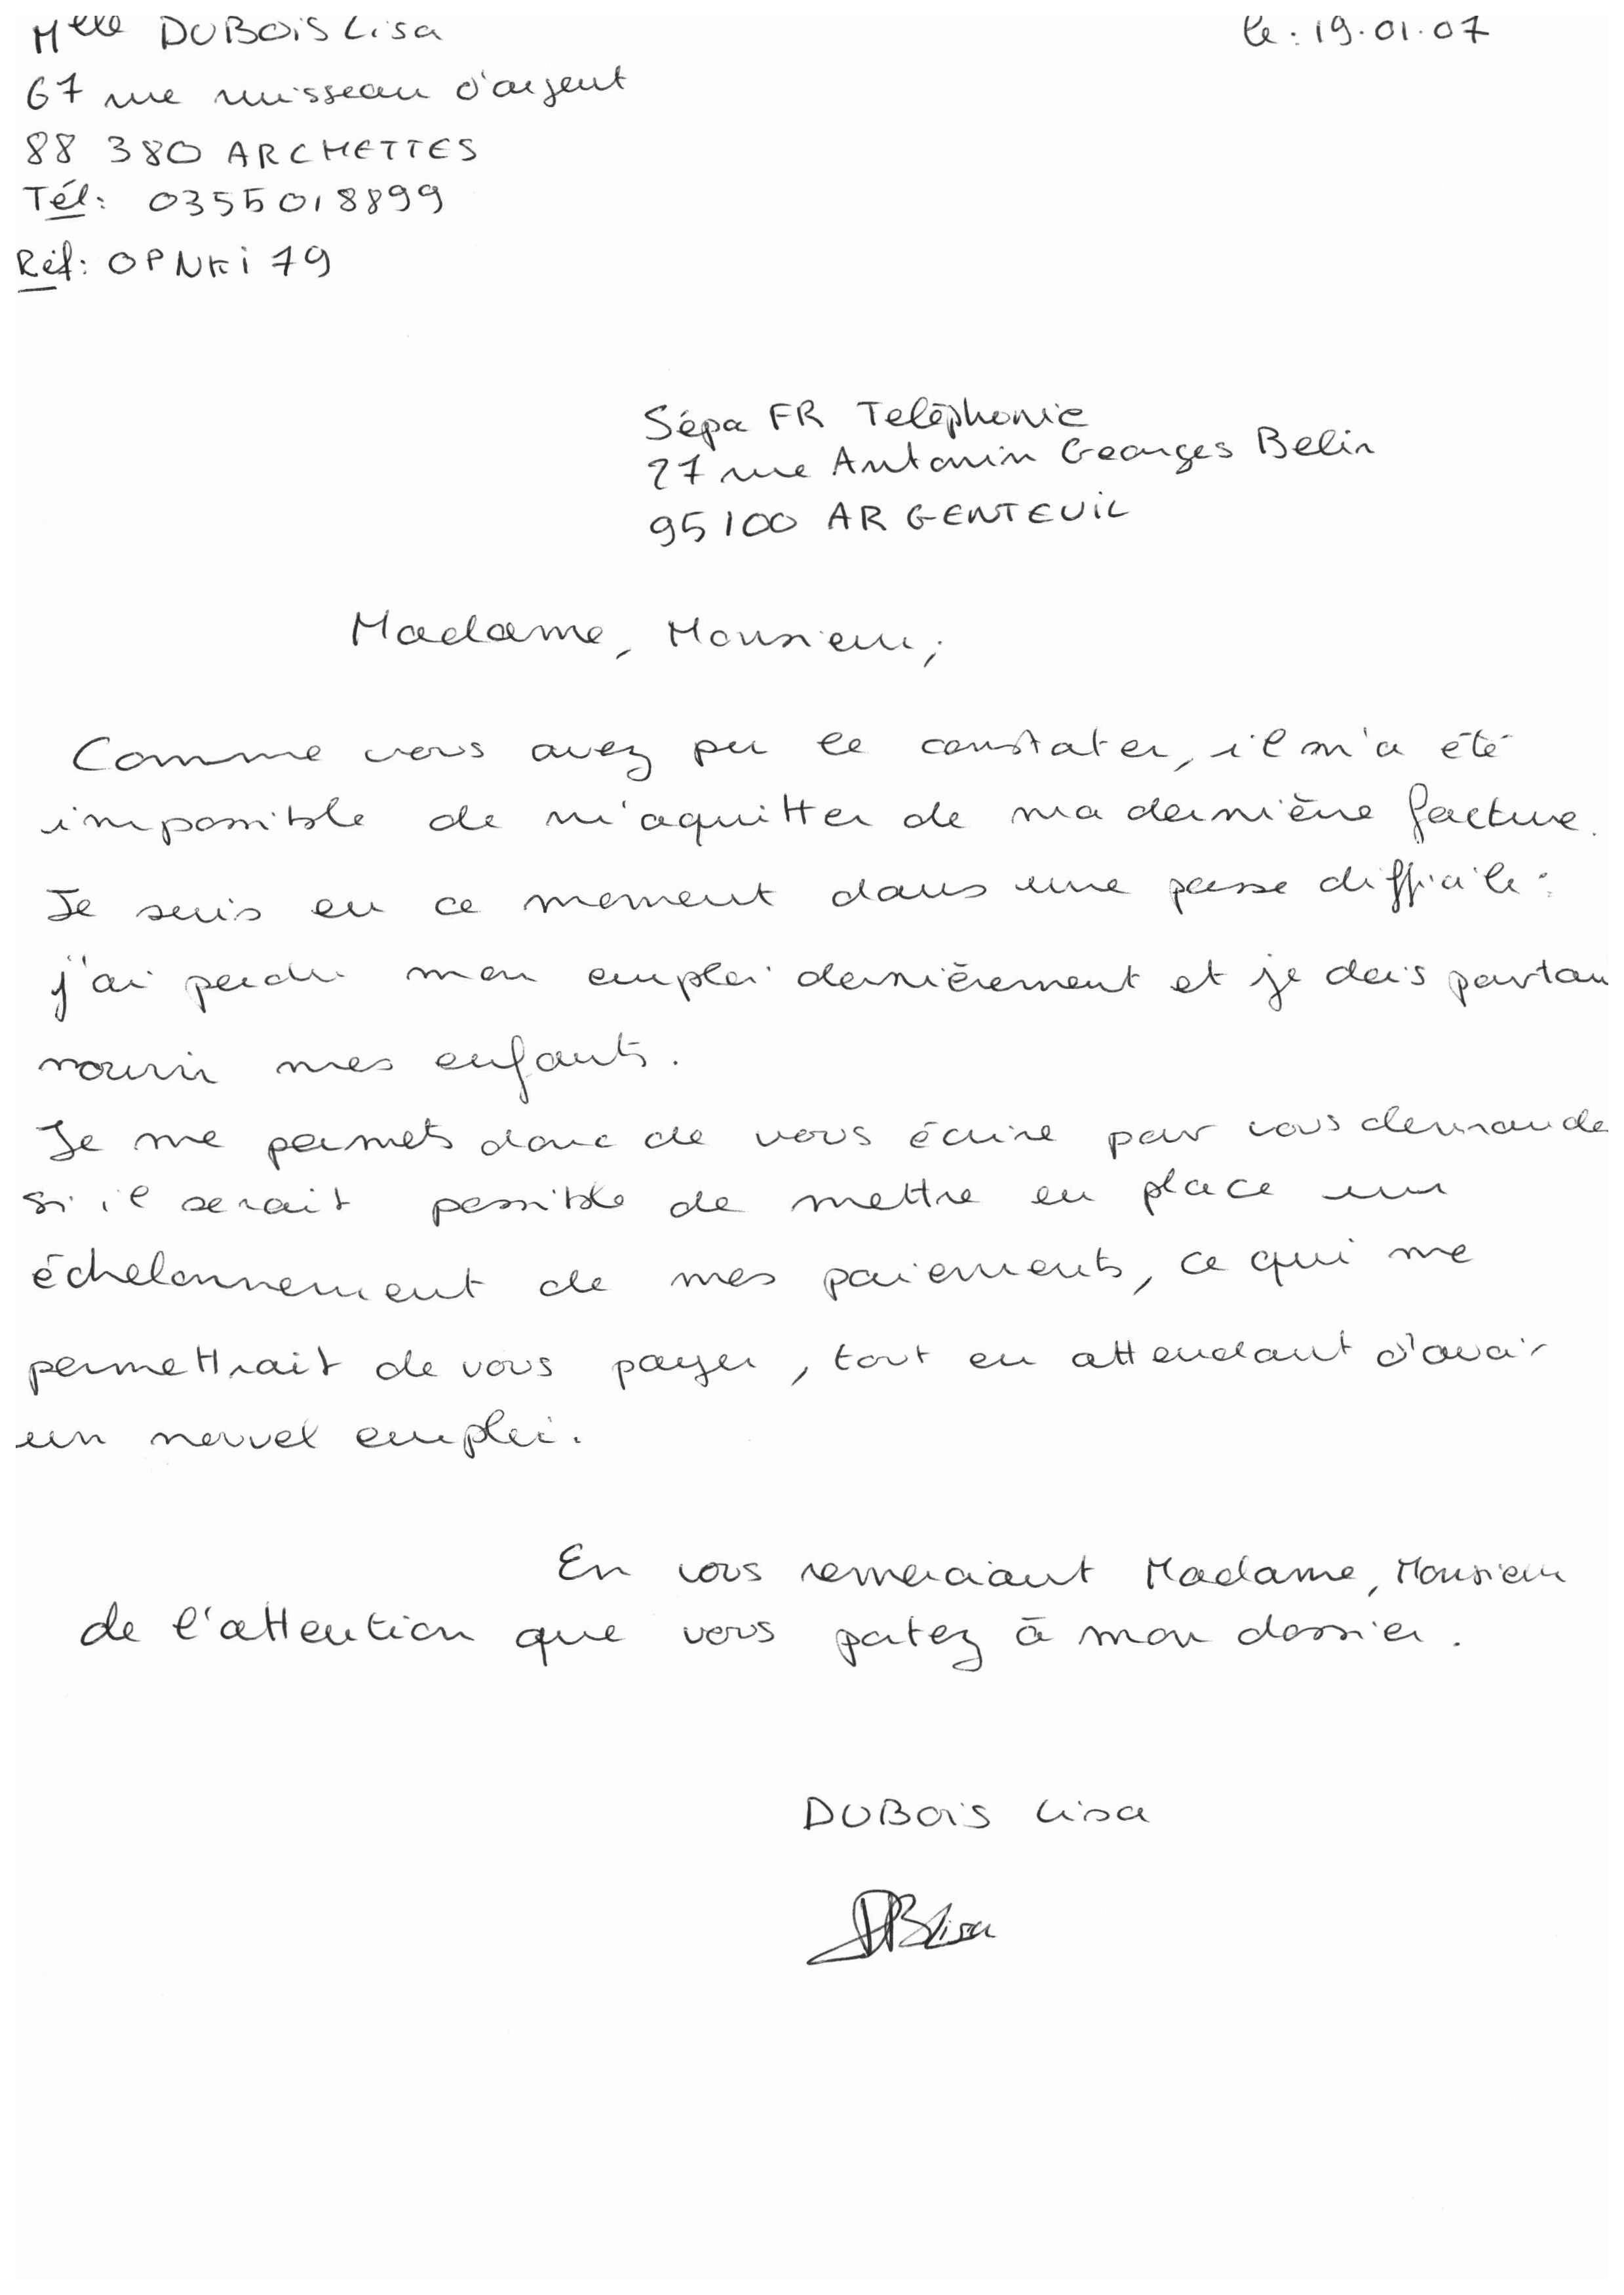 Mlle DUBOIS Lisa
le : 19.01.07
67 rue ruisseau d'argent
88 380 ARCHETTES
Tél : 0355018899
Réf : OPNKi 79
Sépa FR Teléphonie
27 rue Antonin Georges Belin
95100 ARGENTEUIL
Madame, Monsieur,
Comme vous avez pu le constater, il m'a été
impossible de m'aquitter de ma dernière facture.
Je suis en ce moment dans une passe difficile :
j'ai perdu mon emploi dernièrement et je dois pourtan
nourrir mes enfants.
Je me permets donc de vous écrire pour vous demande
si il serait possible de mettre en place un
échelonnement de mes paiements, ce qui me
permettrait de vous payer, tout en attendant d'avoir
un nouvel emploi.
En vous remerciant Madame, Monsieur
de l'attention que vous portez à mon dossier.
DUBOIS Lisa
DB Lisa